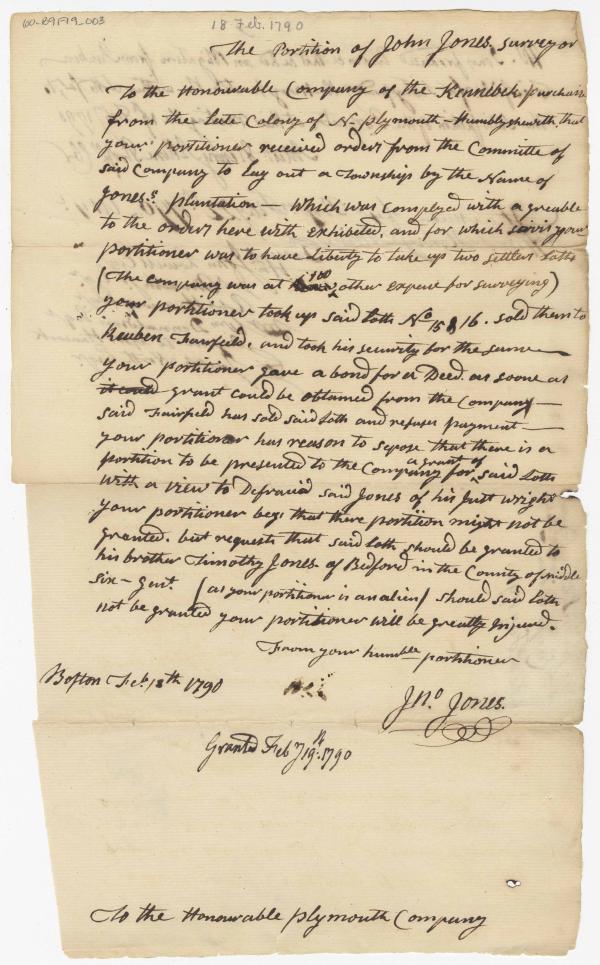 60-89F19_003
18 Feb. 1790
The Portition of John Jones, Surveyor
To the Honourable Company of the Kennebek purchase
from the late Colony of N- plymouth - Humbly sheweth, that
your portitioner received orders from the Committe of
said Company to lay out a Township by the Name of
Jones.s plantation — which was complyed with a greable
to the orders here with exhibited, and for which sarvis your
portitioner was to have liberty to take up two settlers Lotts
(The Company was at no other expence for surveying)
your portitioner took up said Lotts No 15 & 16. sold them to
Reuben Fairfield, and took his security for the same —
your portitioner gave a bond for a Deed as soone as
it could grant could be obtained from the Company —
said Fairfield has sold said Lotts and refuses payment —
your portitioner has reason to sopose that there is a
portition to be presented to the Company for a grant of said Lotts
with a view to Defraud said Jones of his Just wright
your portitioner begs that there portition might not be
granted. but requests that said Lotts should be granted to
his brother Timothy Jones of Bidford in the County of midle
six - Gent. (as your portitioner is an alien) should said Lotts
not be granted your portitioner will be greatly Injured.
From your humble portitioner
Boston Feb. 18th 1790
Jno. Jones.
Granted Feby 19th. 1790
To the Honourable Plymouth Company